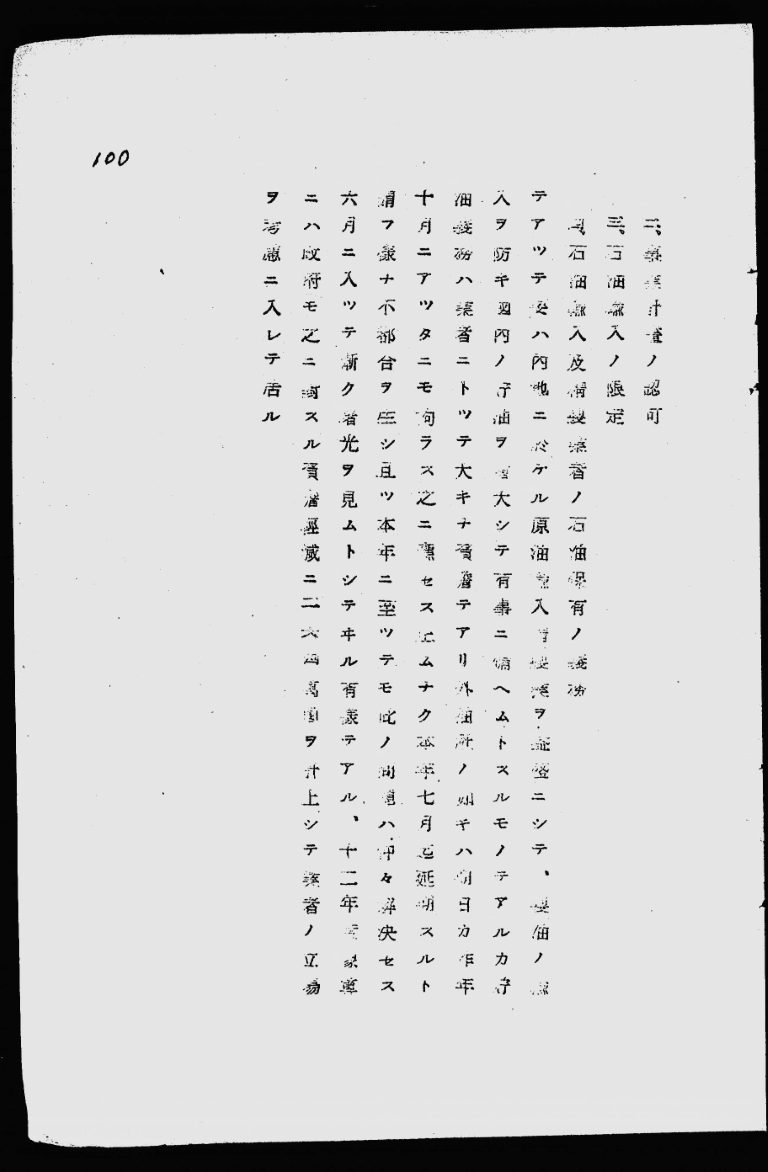 100
二、事業計畫ノ認可
三、石油輸入ノ限定
四、石油輸入及精製業者ノ石油保有ノ義務
テアツテ要ハ內地ニ於ケル原油輸入精製業ヲ旺盛ニシテ、製油ノ輸
入ヲ防キ國內ノ貯油ヲ增大シテ有事ニ備ヘムトスルモノテアルカ貯
油義務ハ業者ニトツテ大キナ負擔テアリ外油社ノ如キハ期日カ昨年
十月ニアツタニモ拘ラス之ニ應セス止ムナク本年七月迄延期スルト
謂フ樣ナ不都合ヲ生シ且ツ本年ニ至ツテモ此ノ問題ハ仲々解決セス
六月ニ入ツテ漸ク曙光ヲ見ムトシテヰル有樣テアル、十二年度豫算
ニハ政府モ之ニ對スル負擔輕減ニ二六四萬圓ヲ計上シテ業者ノ立場
ヲ考慮ニ入レテ居ル